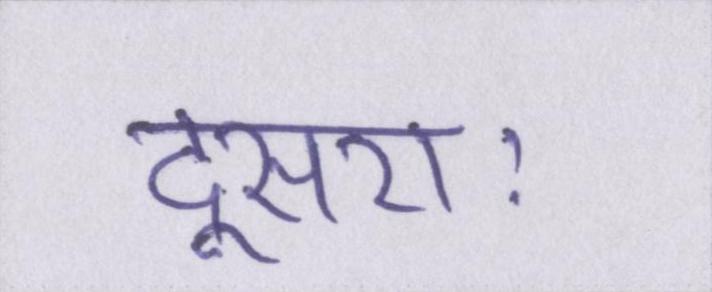 दूसरा: